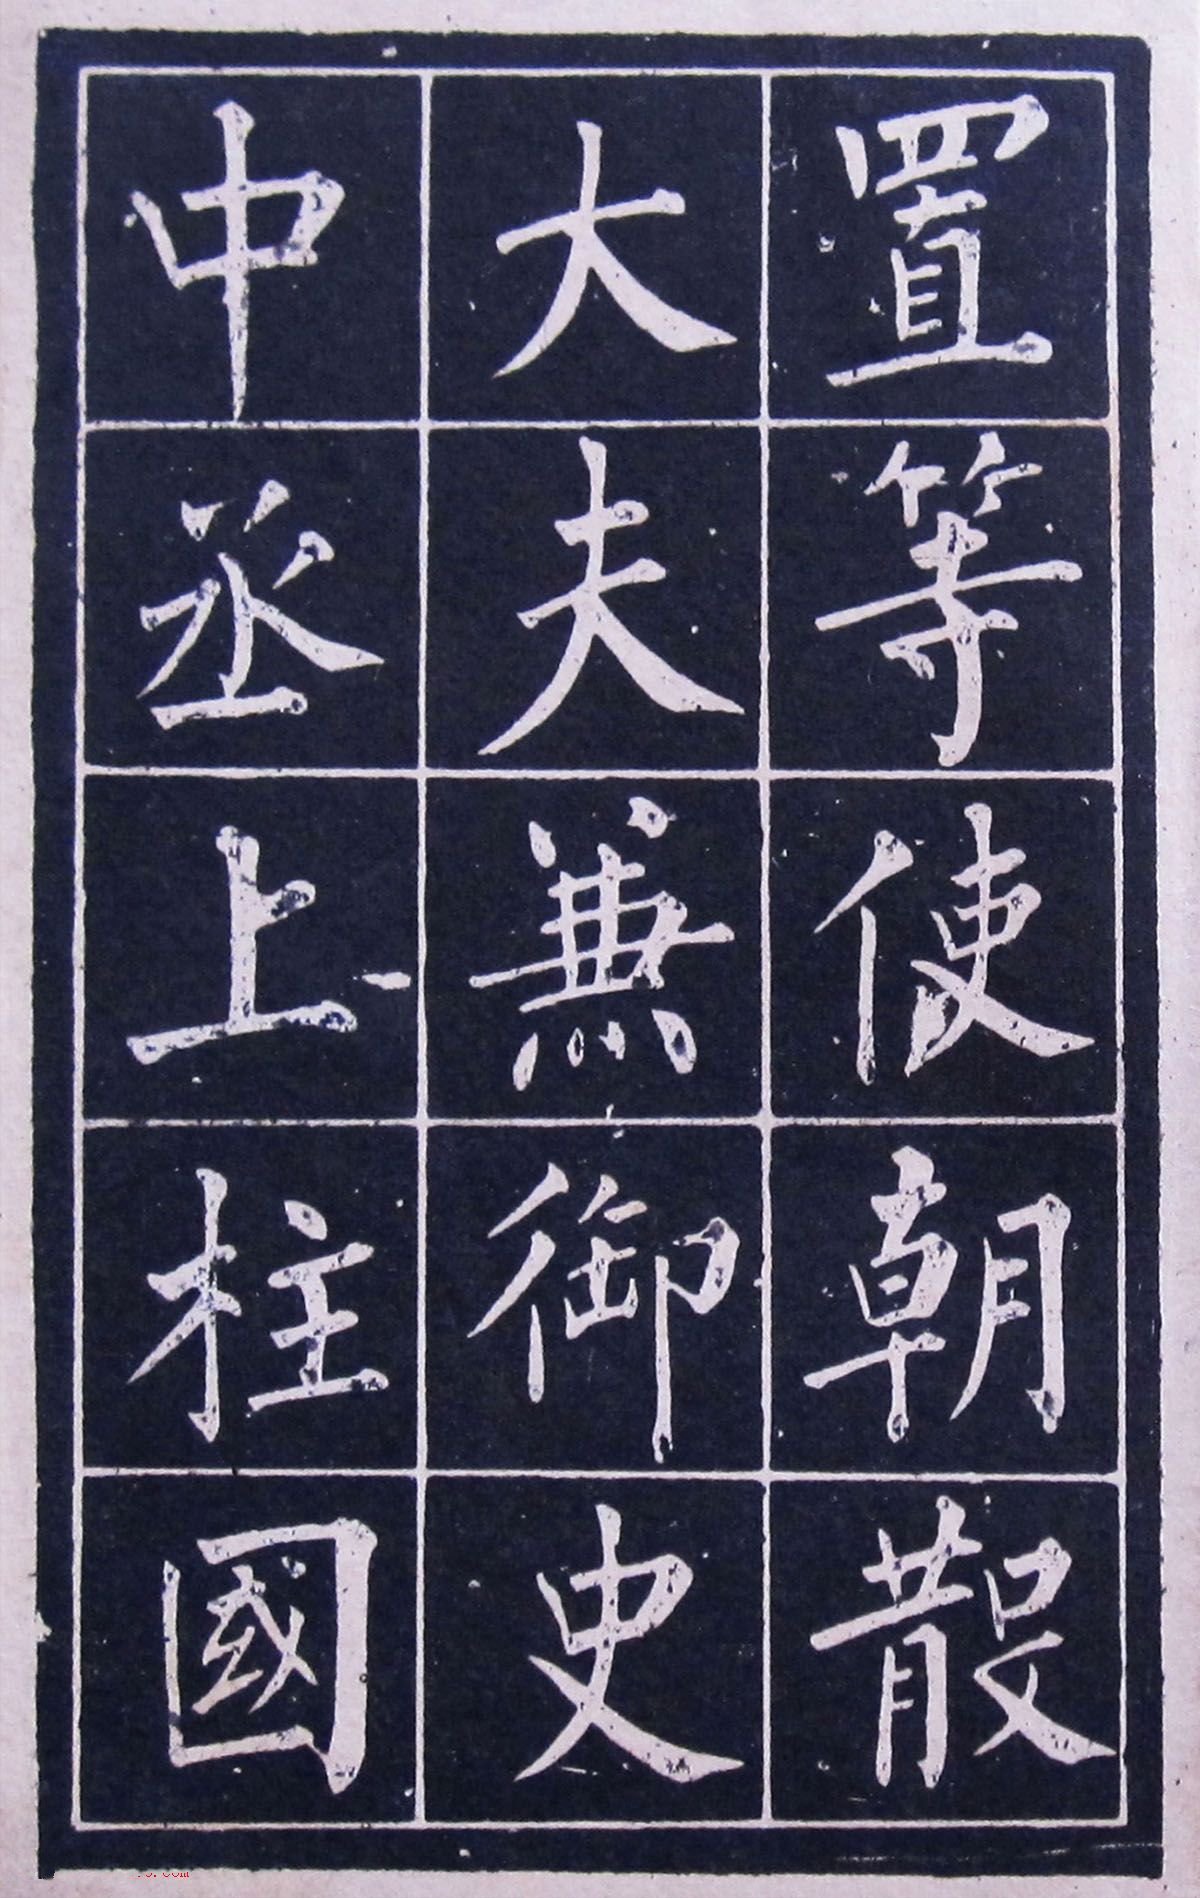 置等使朝散
大夫兼御史
中丞上柱國